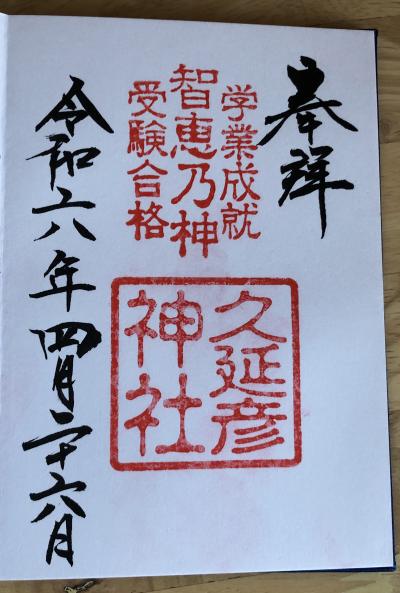 奉拝
学業成就
智恵乃神
受験合格
久延彦
神社
令和六年四月二十六日